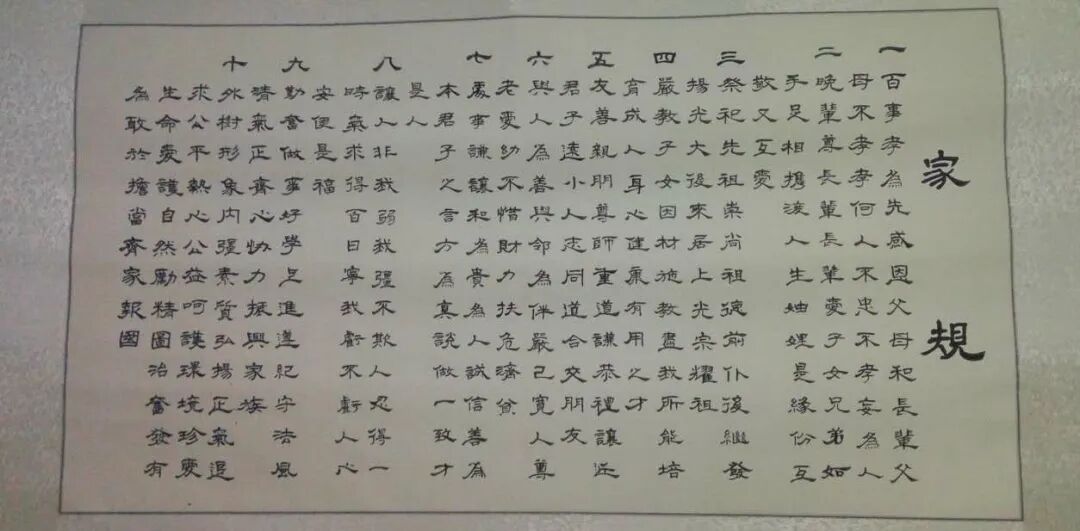 家規
一 百事孝為先感恩父母和長輩父
母不孝孝何人不忠不孝妄為人
二 晚輩尊長輩長輩愛子女兄弟如
手足相攙渡人生妯娌是緣份互
敬又互愛
三 祭祀先祖崇尚祖德前仆後繼發
揚光大後來居上光宗耀祖
四 嚴教子女因材施教盡我所能培
育成人身心健康有用之才
五 友善親朋尊師重道謙恭禮讓近
君子遠小人志同道合交朋友
六 與人為善與鄰為伴嚴己寬人尊
老愛幼不惜財力扶危濟貧
七 處事謙讓和為貴為人誠信善為
本君子之言方為真說做一致才
是人
八 讓人非我弱我強不欺人忍得一
時氣求得百日寧我虧不虧人心
安便是福
九 勤奮做事好學上進遵紀守法風
清氣正齊心協力振興家族
十 外樹形象內強素質弘揚正氣追
求公平熱心公益呵護環境珍愛
生命愛護自然勵精圖治奮發有
為敢於擔當齊家報國